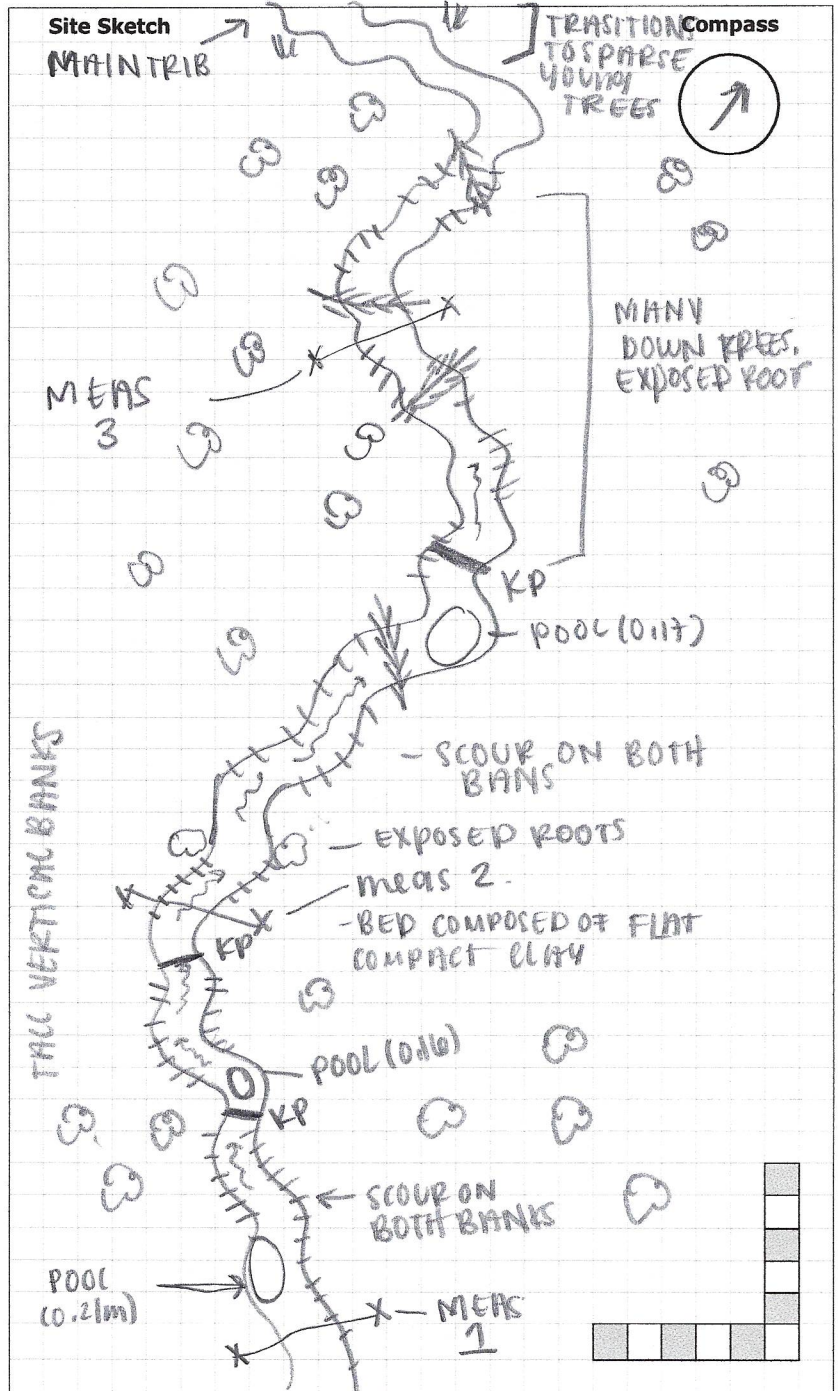 Site Sketch
Compass
MAIN TRIB
TRASITIONS
TO SPARSE
YOUNG
TREES
MANY
DOWN TREES,
EXPOSED ROOT
MEAS
3
KP
POOL (0.17)
- SCOUR ON BOTH
BANS
TALL VERTICAL BANKS
- EXPOSED ROOTS
meas 2.
- BED COMPOSED OF FLAT
COMPACT CLAY
KP
POOL (0.16)
KP
SCOUR ON
BOTH BANKS
POOL
(0.21m)
MEAS
1